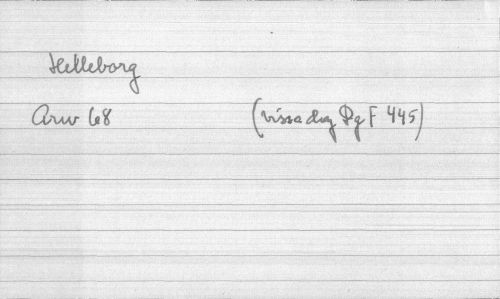 Helleborg
Arw 68 (vissa dug Pg F 445)